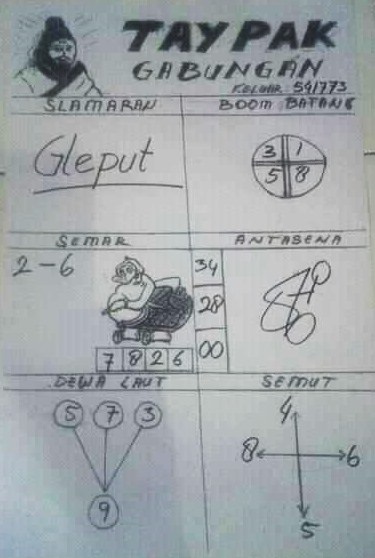 TAYPAK
GABUNGAN
KELUAR: 591773
SLAMARAN
BOOM BATANG
Gleput
3 1
5 8
SEMAR
ANTASENA
2-6
34
28
00
7 8 2 6
DEWA LAUT
SEMUT
5 7 3
9
4
8 6
5